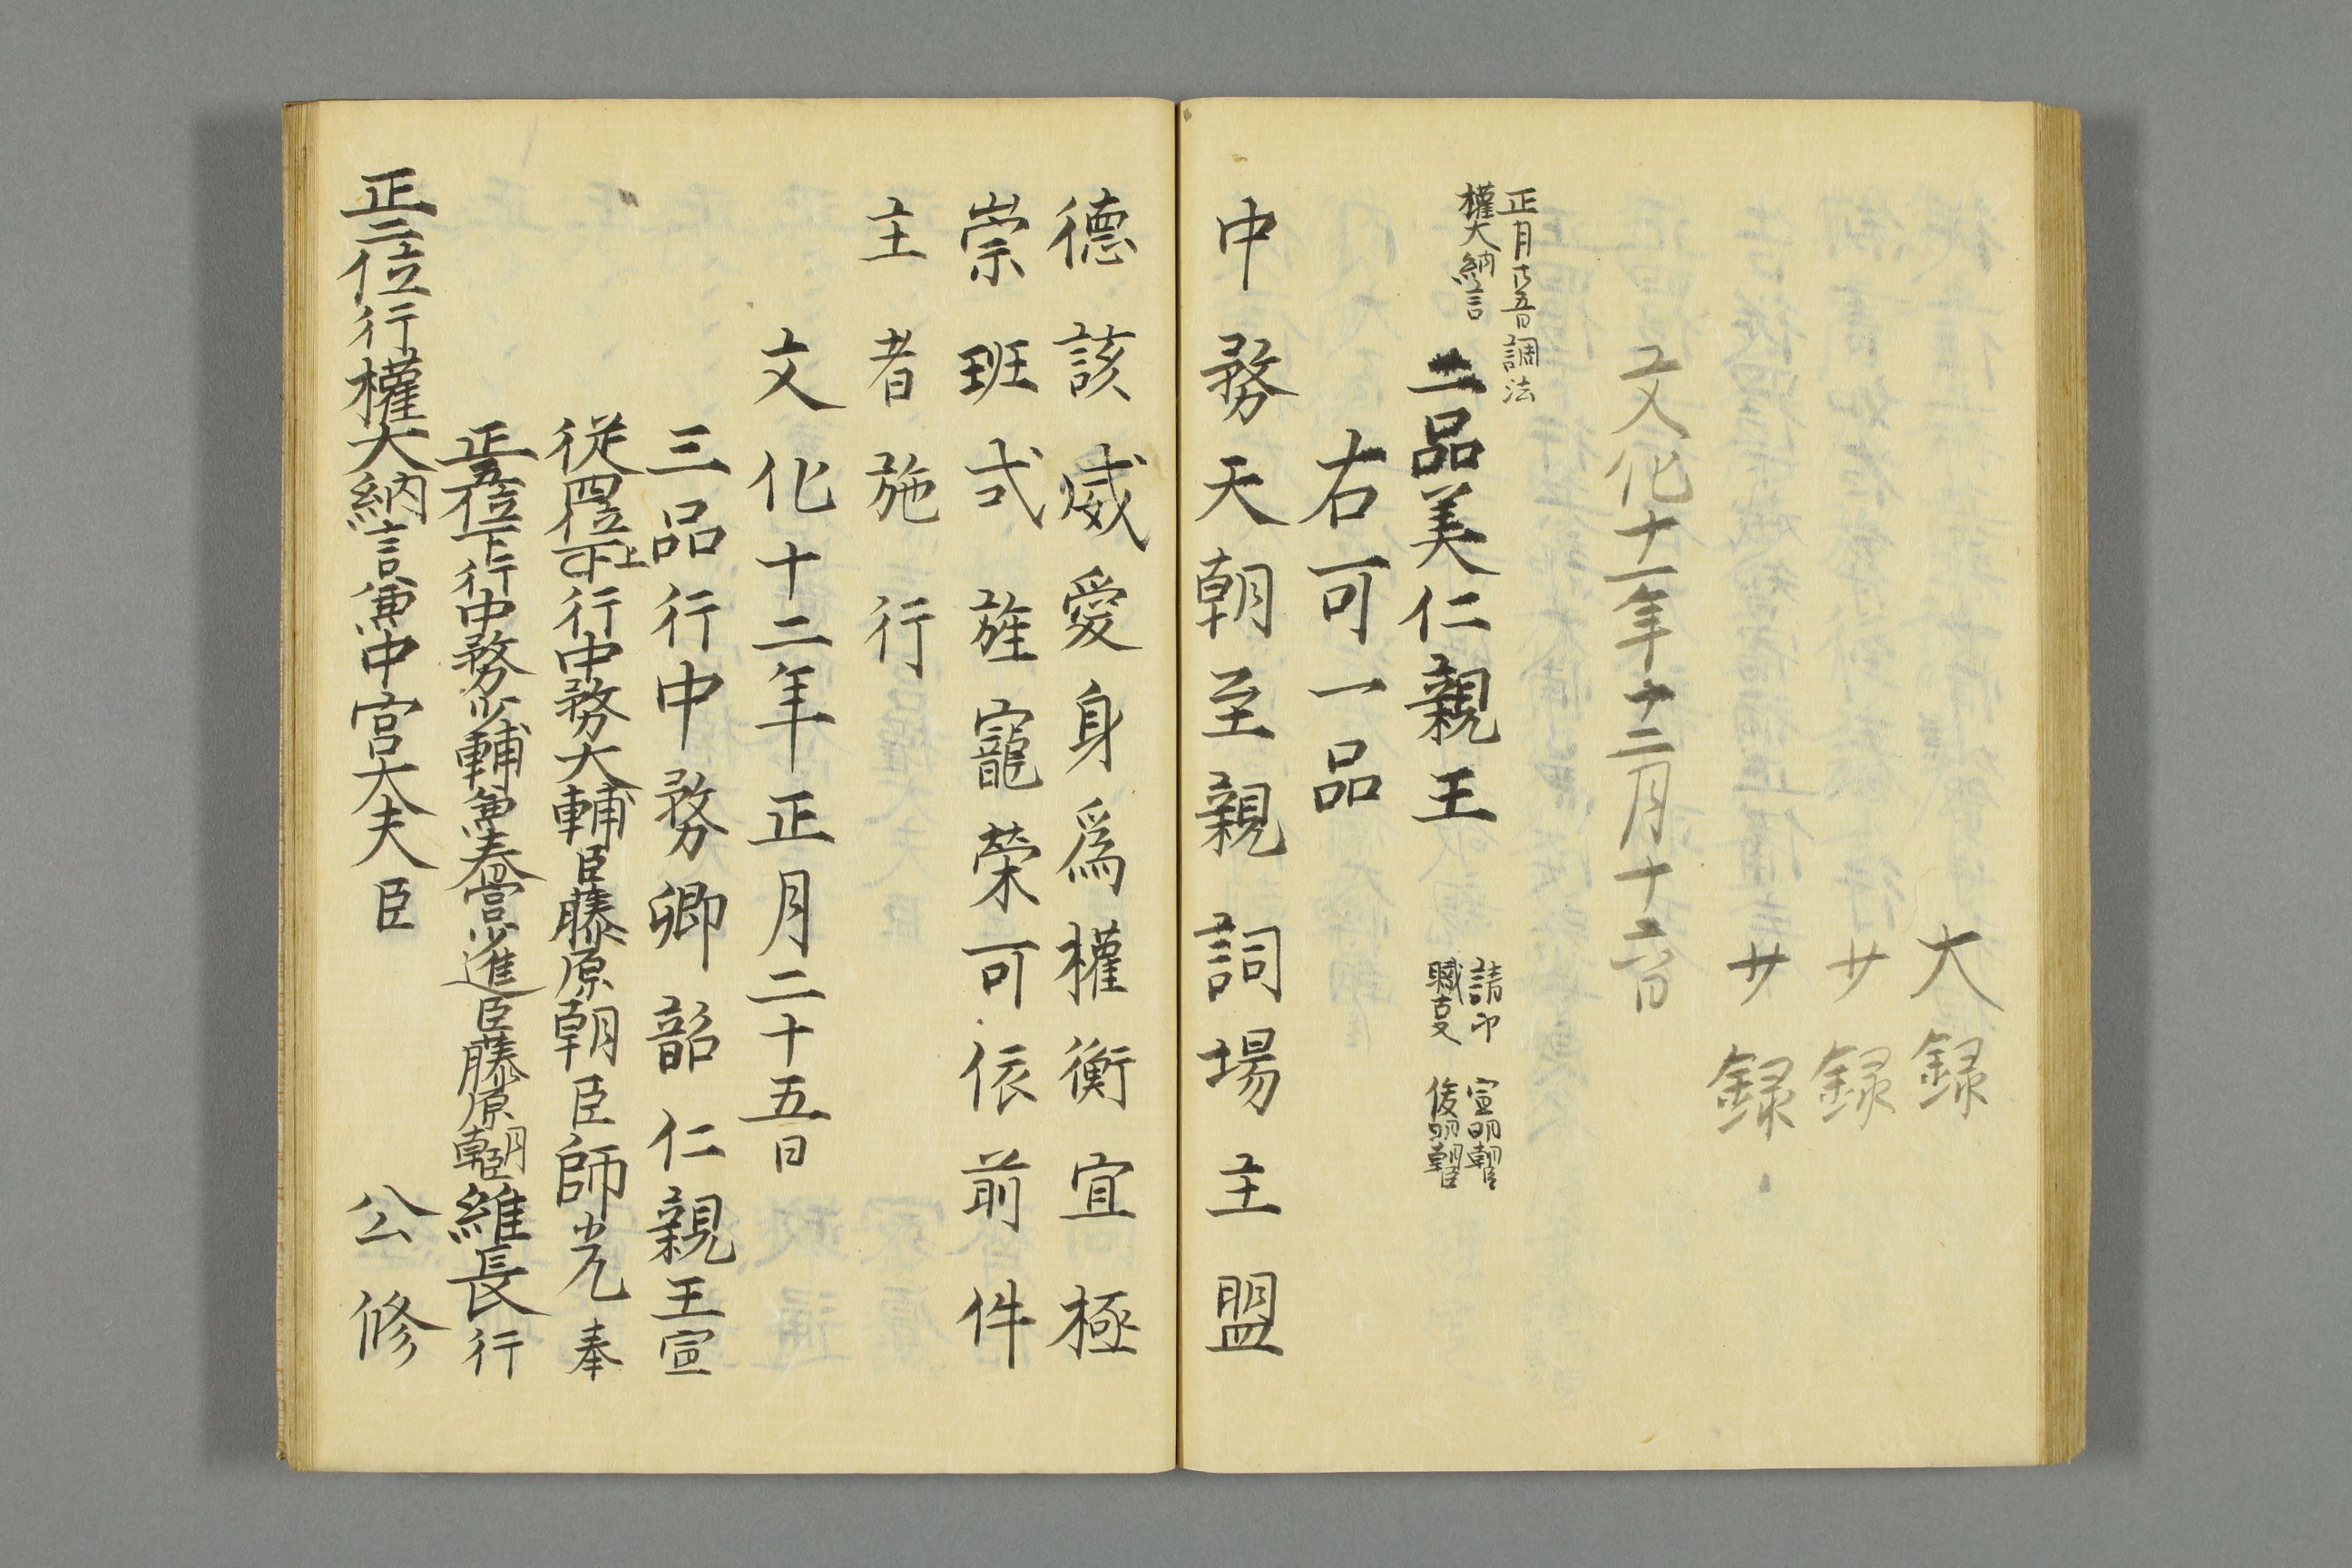 大録
少録
少録
文化十一年十二月十六日
正月廿五日調法
權大納言
二品美仁親王
請印
宣明朝臣
俊明朝臣
右可一品
中務天朝至親詞場主盟
德該威愛身爲權衡宜極
崇班式旌寵榮可依前件
主者施行
文化十二年正月二十五日
三品行中務卿韶仁親王宣
従四位下上行中務大輔臣藤原朝臣師光奉
正五位下行中務少輔兼春宮少進臣藤原朝臣維長行
正二位行權大納言兼中宮大夫臣
公修